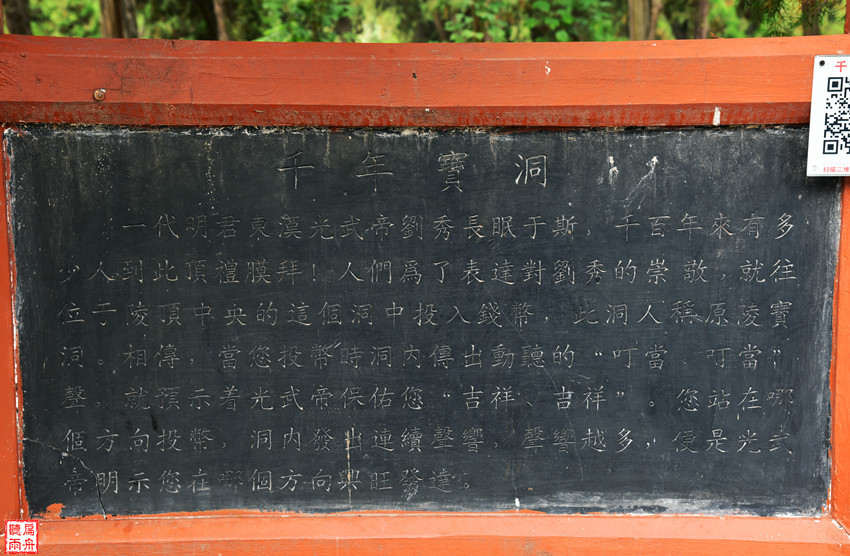 千年寶洞
一代明君東漢光武帝劉秀長眠于斯，千百年來有多
少人到此頂禮膜拜！人們爲了表達對劉秀的崇敬，就往
位于陵頂中央的這個洞中投入錢幣，此洞人稱原陵寶
洞。相傳，當您投幣時洞内傳出動聽的“叮當、叮當”
聲，就預示着光武帝保佑您“吉祥、吉祥”。您站在哪
個方向投幣，洞内發出連續聲響，聲響越多，便是光武
帝明示您在哪個方向興旺發達。
千
扫描二维
聽雨